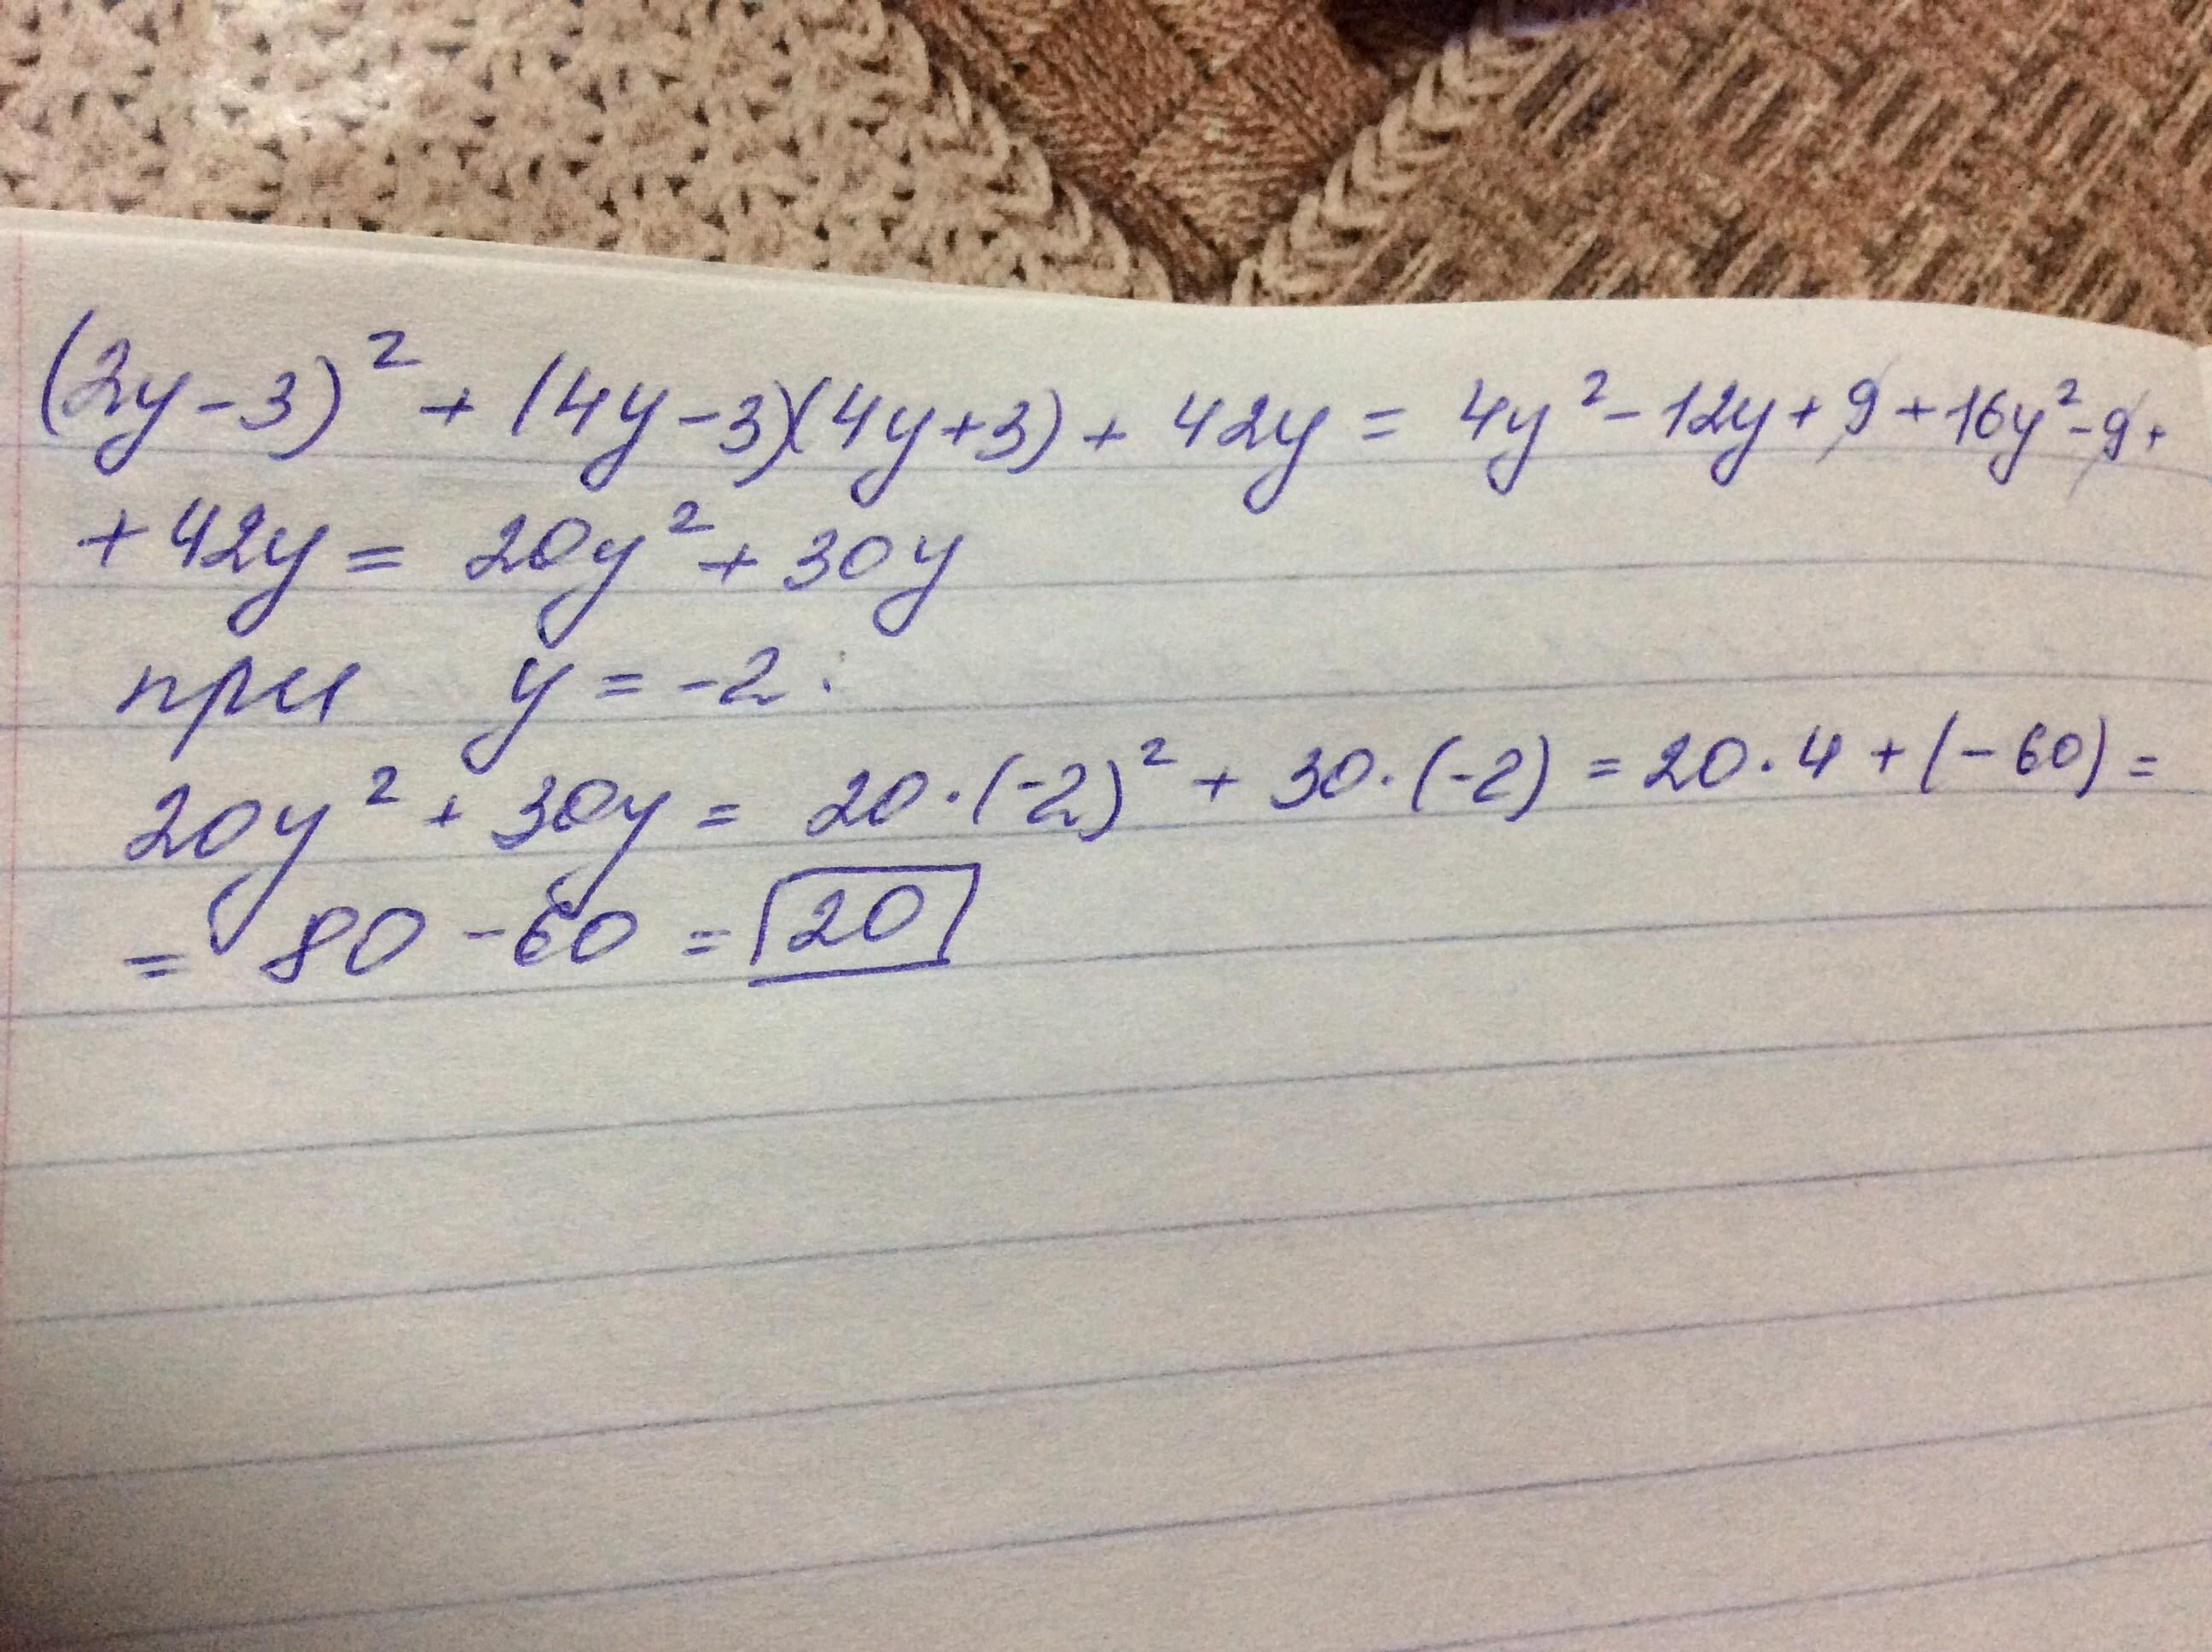 (2y-3)² + (4y-3)(4y+3) + 42y = 4y² - 12y + 9 + 16y² - 9 +
+ 42y = 20y² + 30y
при y = -2:
20y² + 30y = 20·(-2)² + 30·(-2) = 20·4 + (-60) =
= 80 - 60 = 20